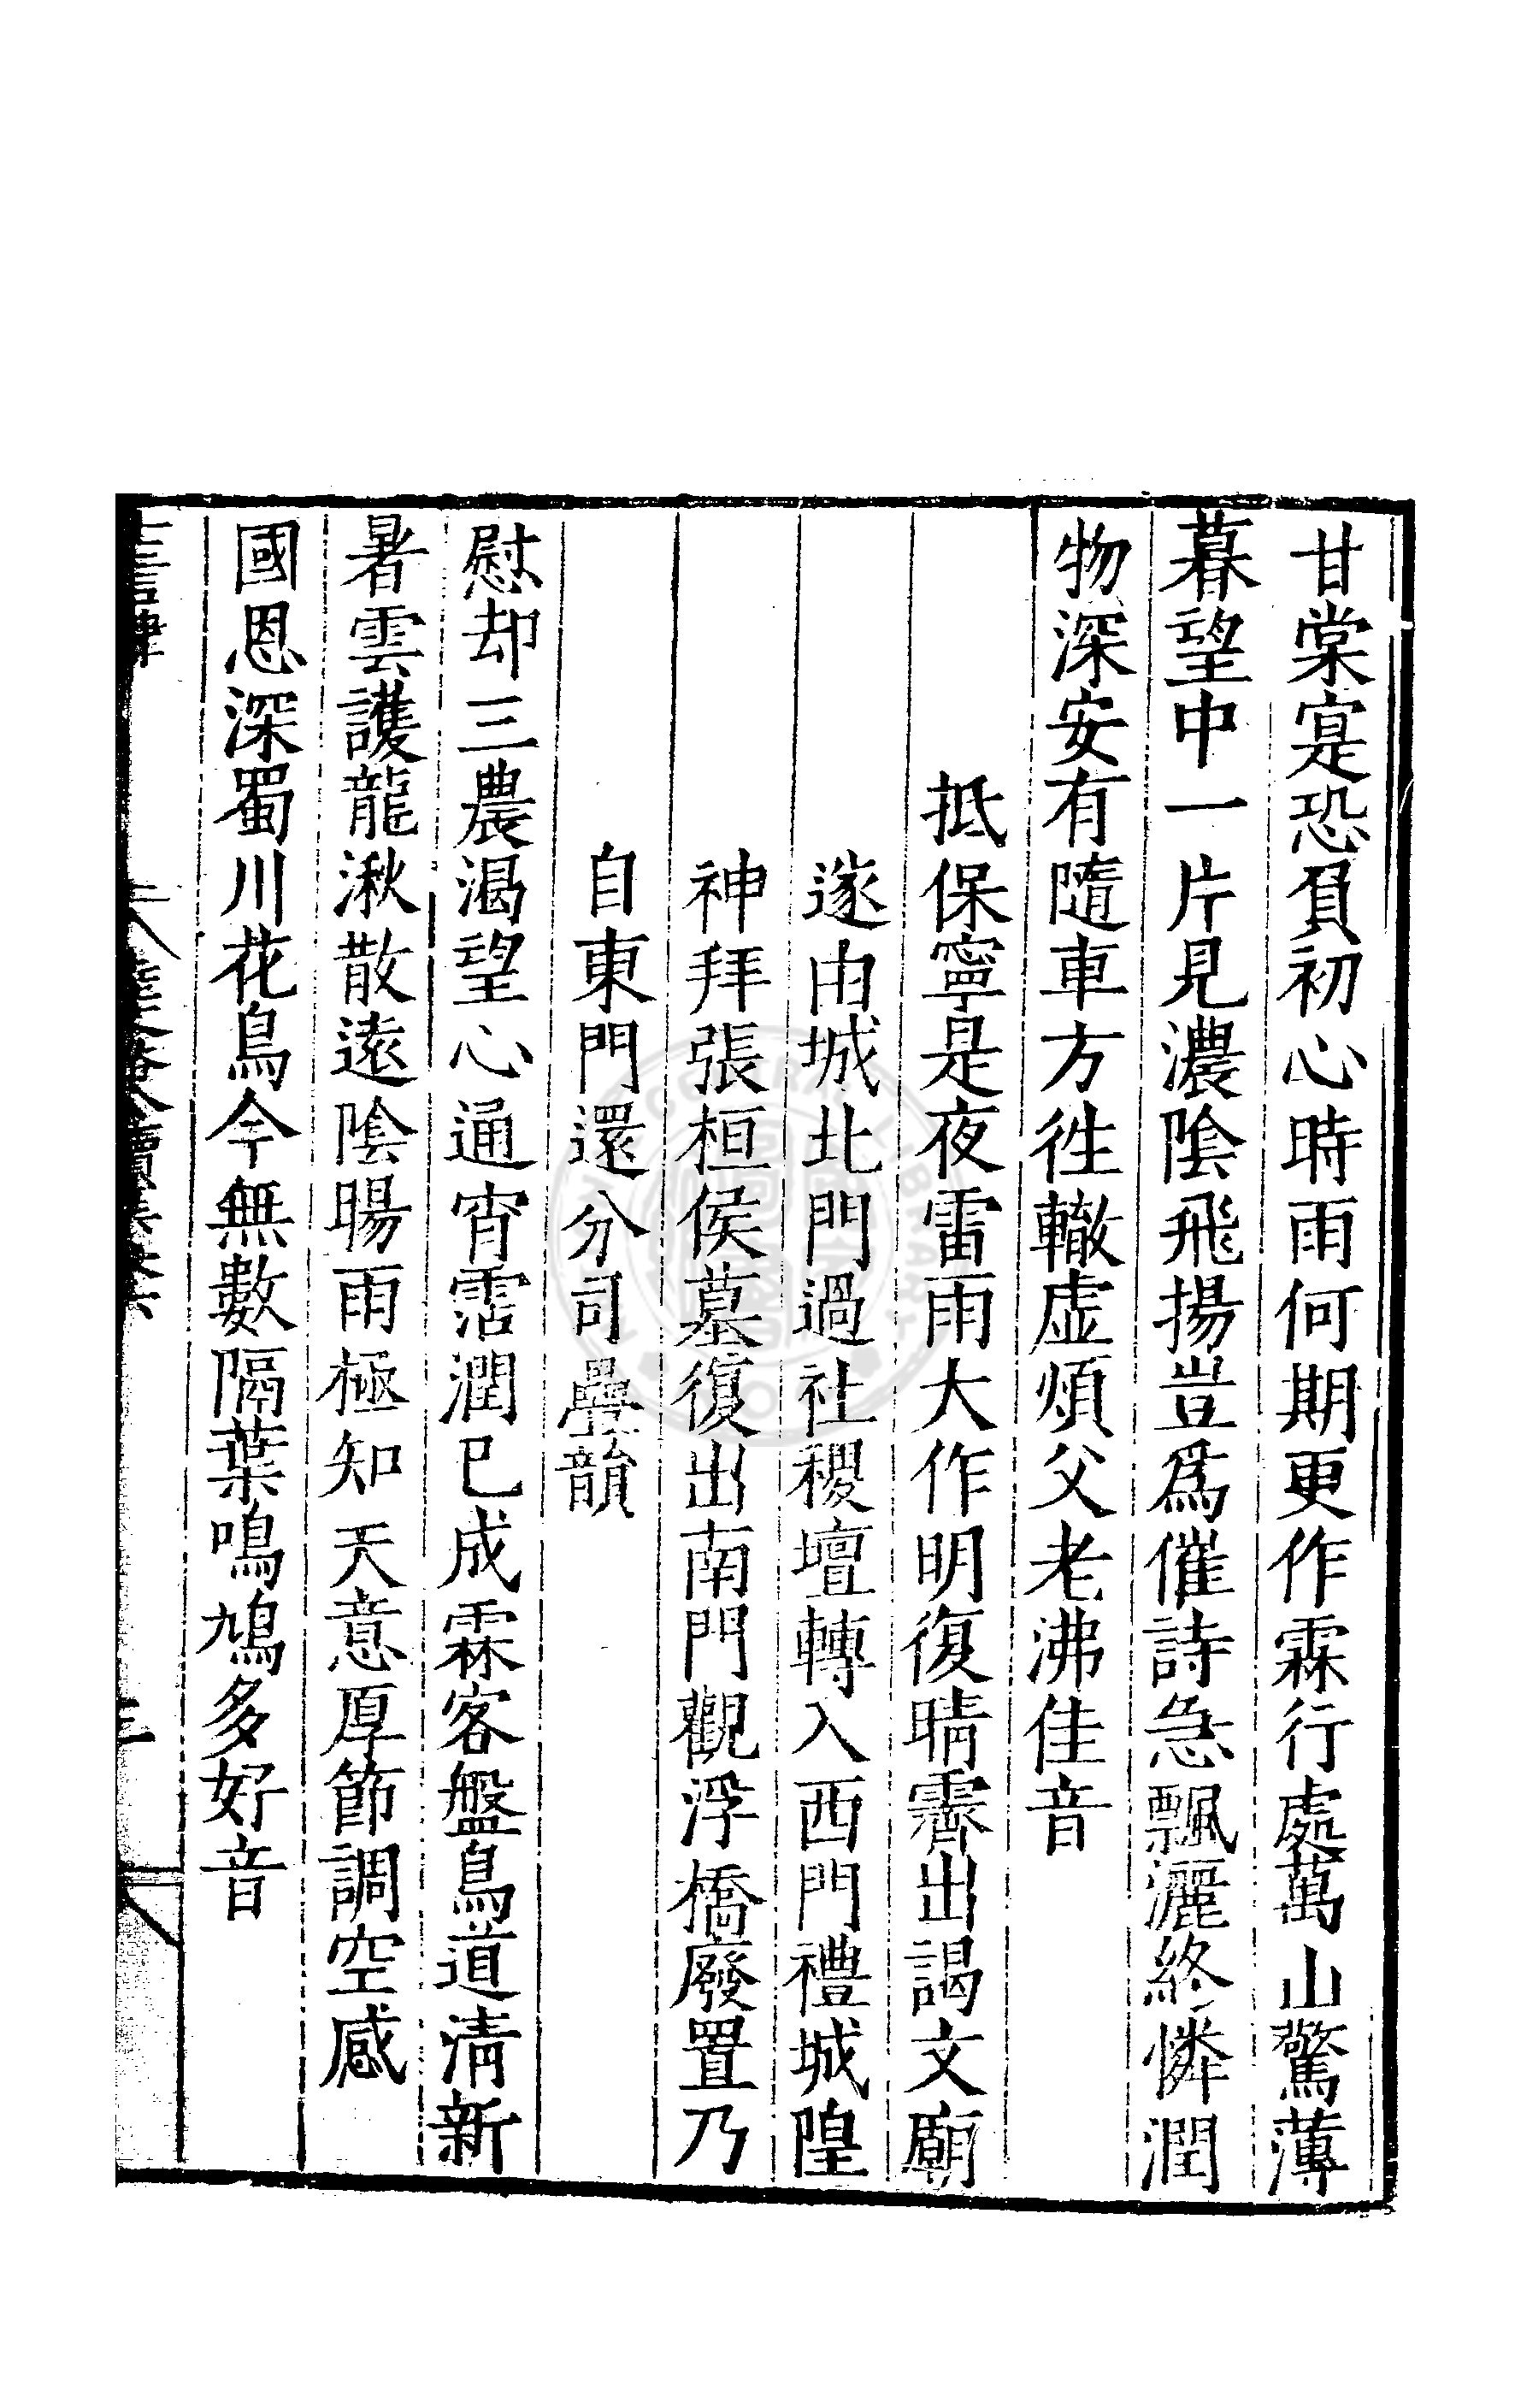 甘棠寔恐負初心時雨何期更作霖行處萬山驚薄
暮望中一片見濃陰飛揚豈爲催詩急飄灑終憐潤
物深安有隨車方徃轍虚煩父老沸佳音
抵保寧是夜雷雨大作明復晴霽出謁文廟
遂由城北門過社稷壇轉入西門禮城隍
神拜張桓侯墓復出南門觀浮橋廢置乃
自東門還分司疊韻
慰却三農渴望心通宵霑潤已成霖客盤鳥道清新
暑雲護龍湫散遠陰暘雨極知天意厚節調空感
國恩深蜀川花鳥今無數隔葉鳴鳩多好音